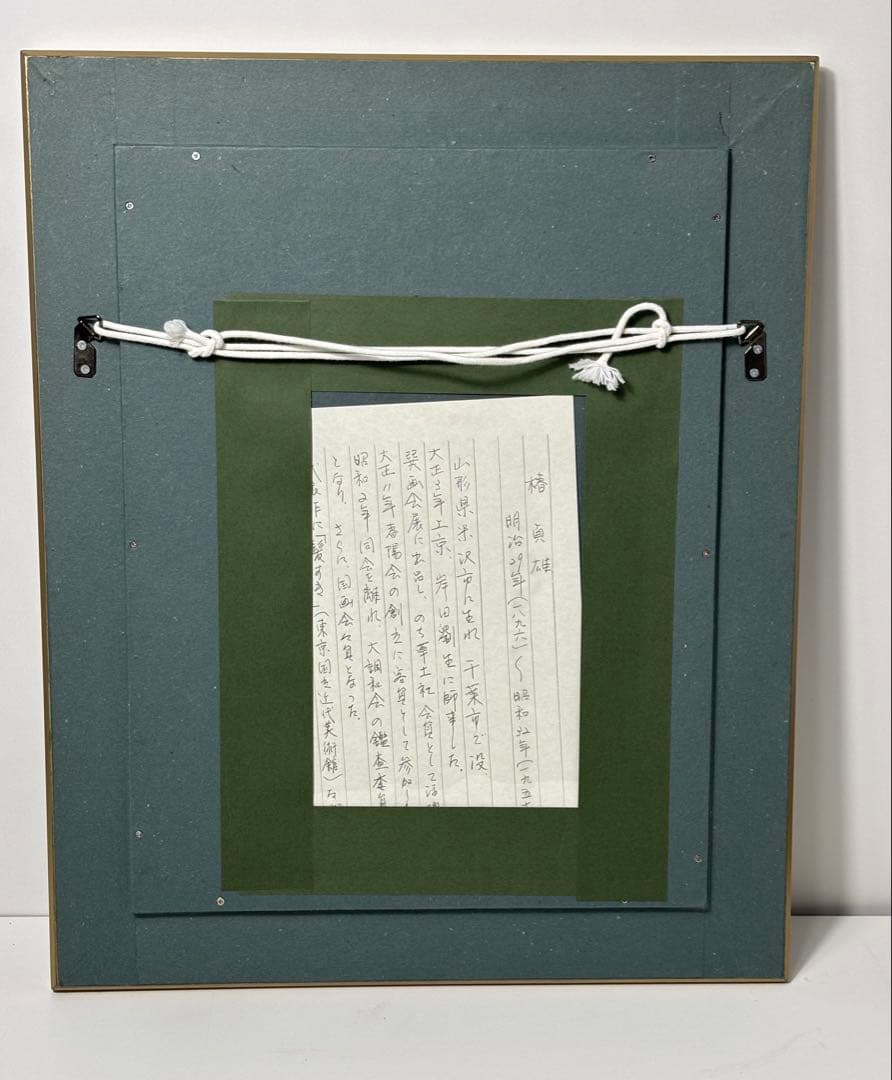 椿貞雄
明治29年(一八九六)〜昭和32年(一九五
山形県米沢市に生れ 千葉市で没
大正3年上京、岸田劉生に師事した。
巽画会展に出品し、のち草土社会員として活
大正11年春陽会の創立に客員として参加し
昭和2年同会を離れ 大調和会の鑑査委員
となり、さらに、国画会会員となった。
代表作に「髪すき」(東京国立近代美術館)な